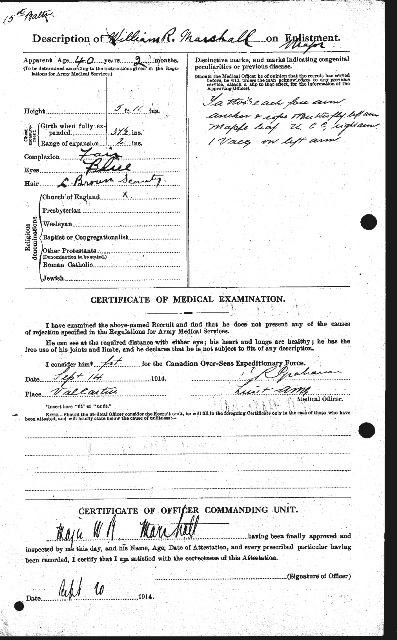 15th Battn
Description of William R. Marshall on Enlistment.
Major
Apparent Age 40 years 2 months.
(To be determined according to the instructions given in the Regulations for Army Medical Services.)
Distinctive marks, and marks indicating congenital
peculiarities or previous disease.
(Should the Medical Officer be of opinion that the recruit has served
before, he will, unless the man acknowledges to any previous
service, attach a slip to that effect, for the information of the
Approving Officer).
Height 5 ft. 11 ins.
Tattoo each fore arm
anchor & rope Butterfly left arm
Maple leaf right arm
1 Vacc on left arm
Chest measurement
Girth when fully expanded ins.
Range of expansion 2 ins.
Complexion Fair
Eyes Blue
Hair L Brown Scanty
Religious denominations
Church of England x
Presbyterian
Wesleyan
Baptist or Congregationalist
Other Protestants
(Denomination to be stated.)
Roman Catholic
Jewish
CERTIFICATE OF MEDICAL EXAMINATION.
I have examined the above-named Recruit and find that he does not present any of the causes
of rejection specified in the Regulations for Army Medical Services.
He can see at the required distance with either eye; his heart and lungs are healthy; he has the
free use of his joints and limbs, and he declares that he is not subject to fits of any description.
I consider him* fit for the Canadian Over-Seas Expeditionary Force.
Date Sept 14 1914.
Place Valcartier
Medical Officer.
*Insert here "fit" or "unfit."
NOTE.—Should the Medical Officer consider the Recruit unfit, he will fill in the foregoing Certificate only in the case of those who have
been attested, and will briefly state below the cause of unfitness:—
CERTIFICATE OF OFFICER COMMANDING UNIT.
Major W R Marshall having been finally approved and
inspected by me this day, and his Name, Age, Date of Attestation, and every prescribed particular having
been recorded, I certify that I am satisfied with the correctness of this Attestation.
(Signature of Officer)
Date Sept 20 1914.